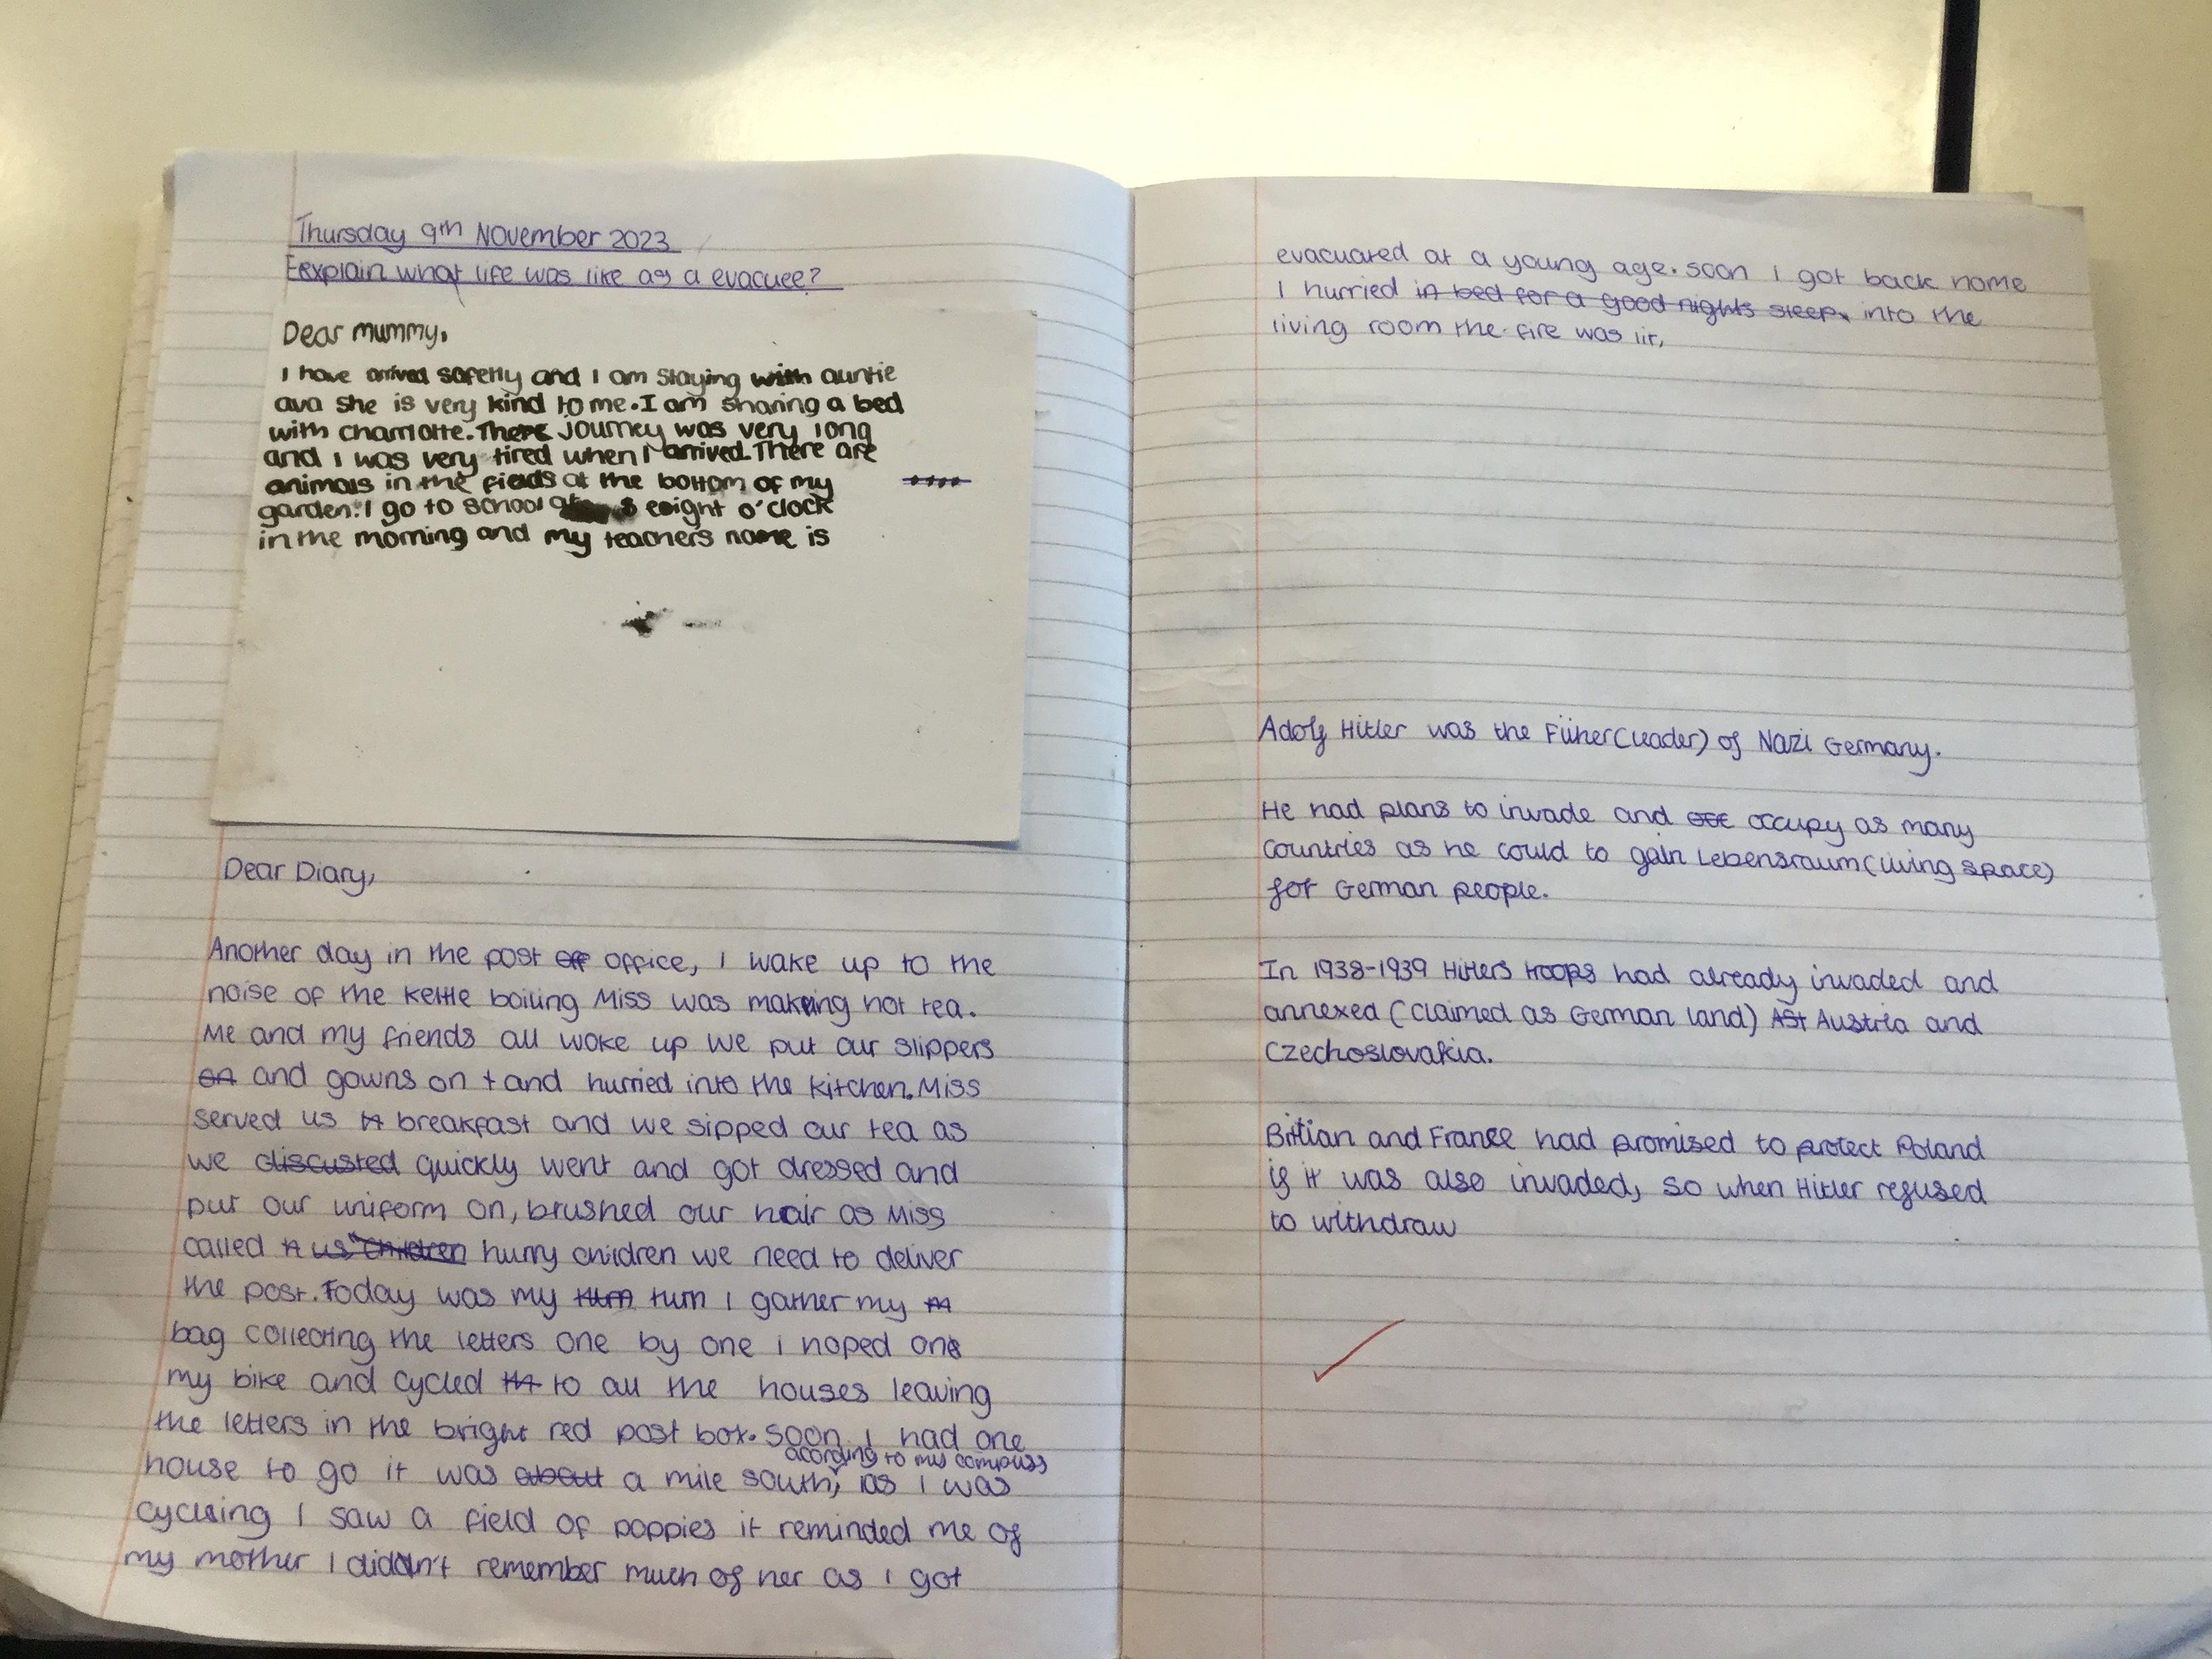 Thursday 9th November 2023
Eexplain what life was like as a evacuee?
Dear mummy,
I have arrived safetly and I am staying with auntie
ava she is very kind to me. I am sharing a bed
with charrlotte. There journey was very long
and I was very tired when I arrived. There are
animals in the fields at the bottom of my
garden. I go to school eight o'clock
in the morning and my teachers name is
Dear Diary,
Another day in the post off office, I wake up to the
noise of the kettle boiling Miss was making hot tea.
Me and my friends all woke up we put our slippers
on and gowns on + and hurried into the kitchen. Miss
served us breakfast and we sipped our tea as
we discusted quickly went and got dressed and
put our uniform on, brushed our hair as Miss
called us "children hurry children we need to deliver
the post. Today was my turn turn I gather my
bag collecting the letters one by one I hoped on
my bike and cycled to all the houses leaving
the letters in the bright red post box. soon I had one
acording to my compass
house to go it was about a mile south, as I was
cycling I saw a field of poppies it reminded me of
my mother I diddn't remember much of her as I got
evacuated at a young age. soon I got back home
I hurried in bed for a good nights sleep. into the
living room the fire was lit,
Adolf Hitler was the Füher (leader) of Nazi Germany.
He had plans to invade and occ occupy as many
countries as he could to gain Lebensraum (living space)
for German people.
In 1938-1939 Hitlers troops had already invaded and
annexed (claimed as German land) Ast Austria and
Czechoslovakia.
Britian and France had promised to protect Poland
if it was also invaded, so when Hitler refused
to withdraw